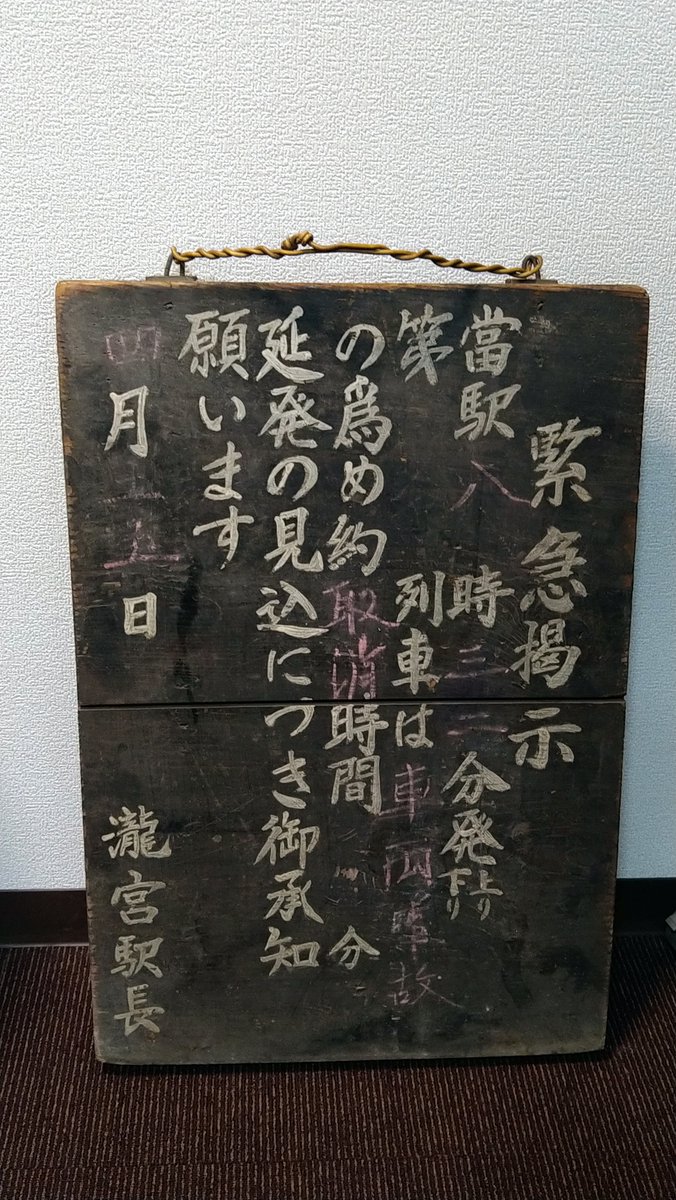 緊急掲示
當駅八時三二分発上り下り
第 列車は車両事故
の爲め約取消時間 分
延発の見込につき御承知
願います
四月二五日 瀧宮駅長